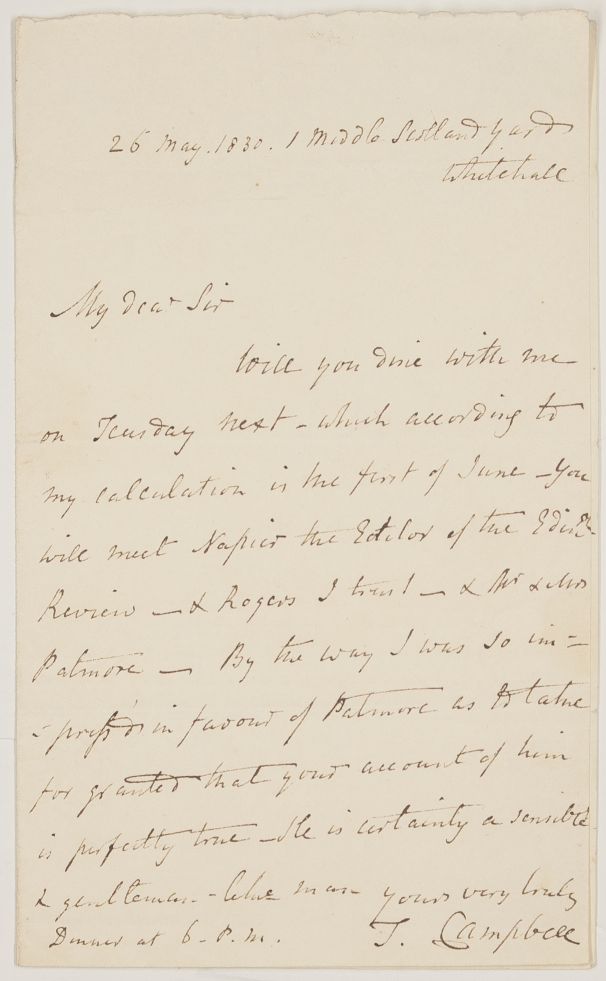 26 May. 1830. 1 Middle Scotland Yard
Whitehall
My dear Sir
Will you dine with me
on Teusday next - which according to
my calculation is the first of June - You
will meet Napier the Editor of the Edinr
Review - & Rogers I trust - & Mr & Mrs
Patmore - By the way I was so im=
-press'd in favour of Patmore as to take
for granted that your account of him
is perfectly true - He is certainly a sensible
& gentleman-like man yours very truly
Dinner at 6 - P.M. T. Campbell